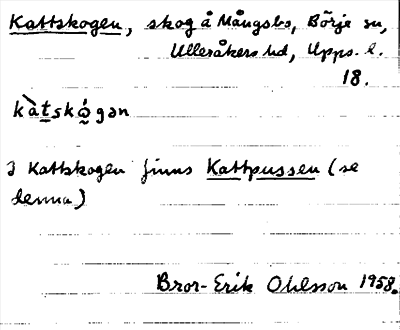 Kattskogen, skog å Mångsbo, Börje sn,
Ulleråkers hd, Upps. l.
18.
kàtskó̰gən
I Kattskogen finns Kattpussen (se
denna)
Bror-Erik Ohlsson 1958.